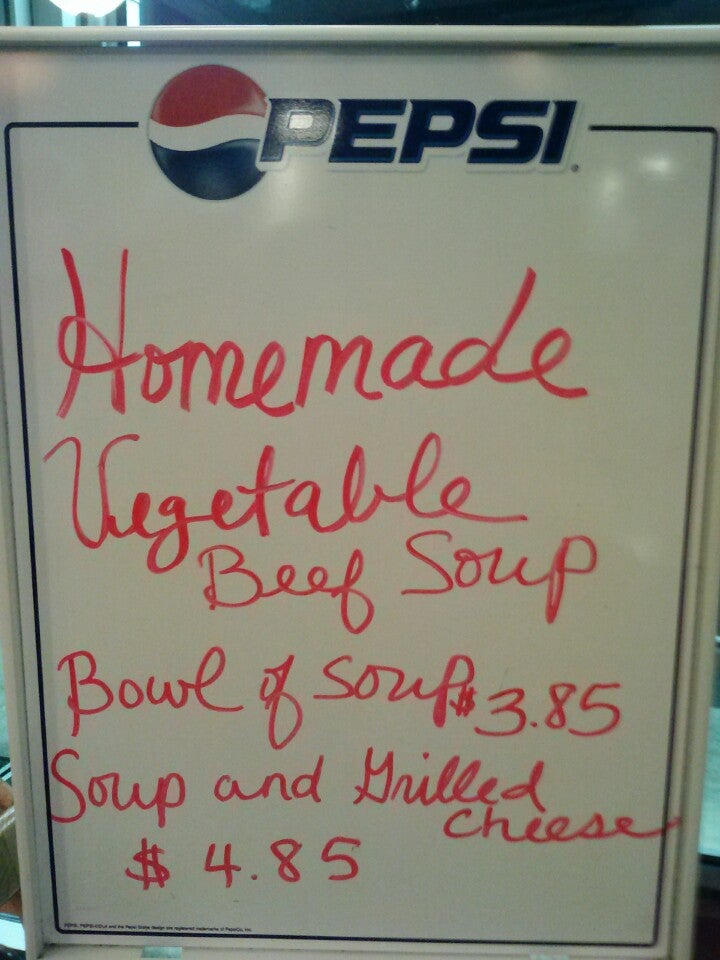 PEPSI
Homemade
Vegetable
Beef Soup
Bowl of Soup $3.85
Soup and Grilled
cheese
$4.85